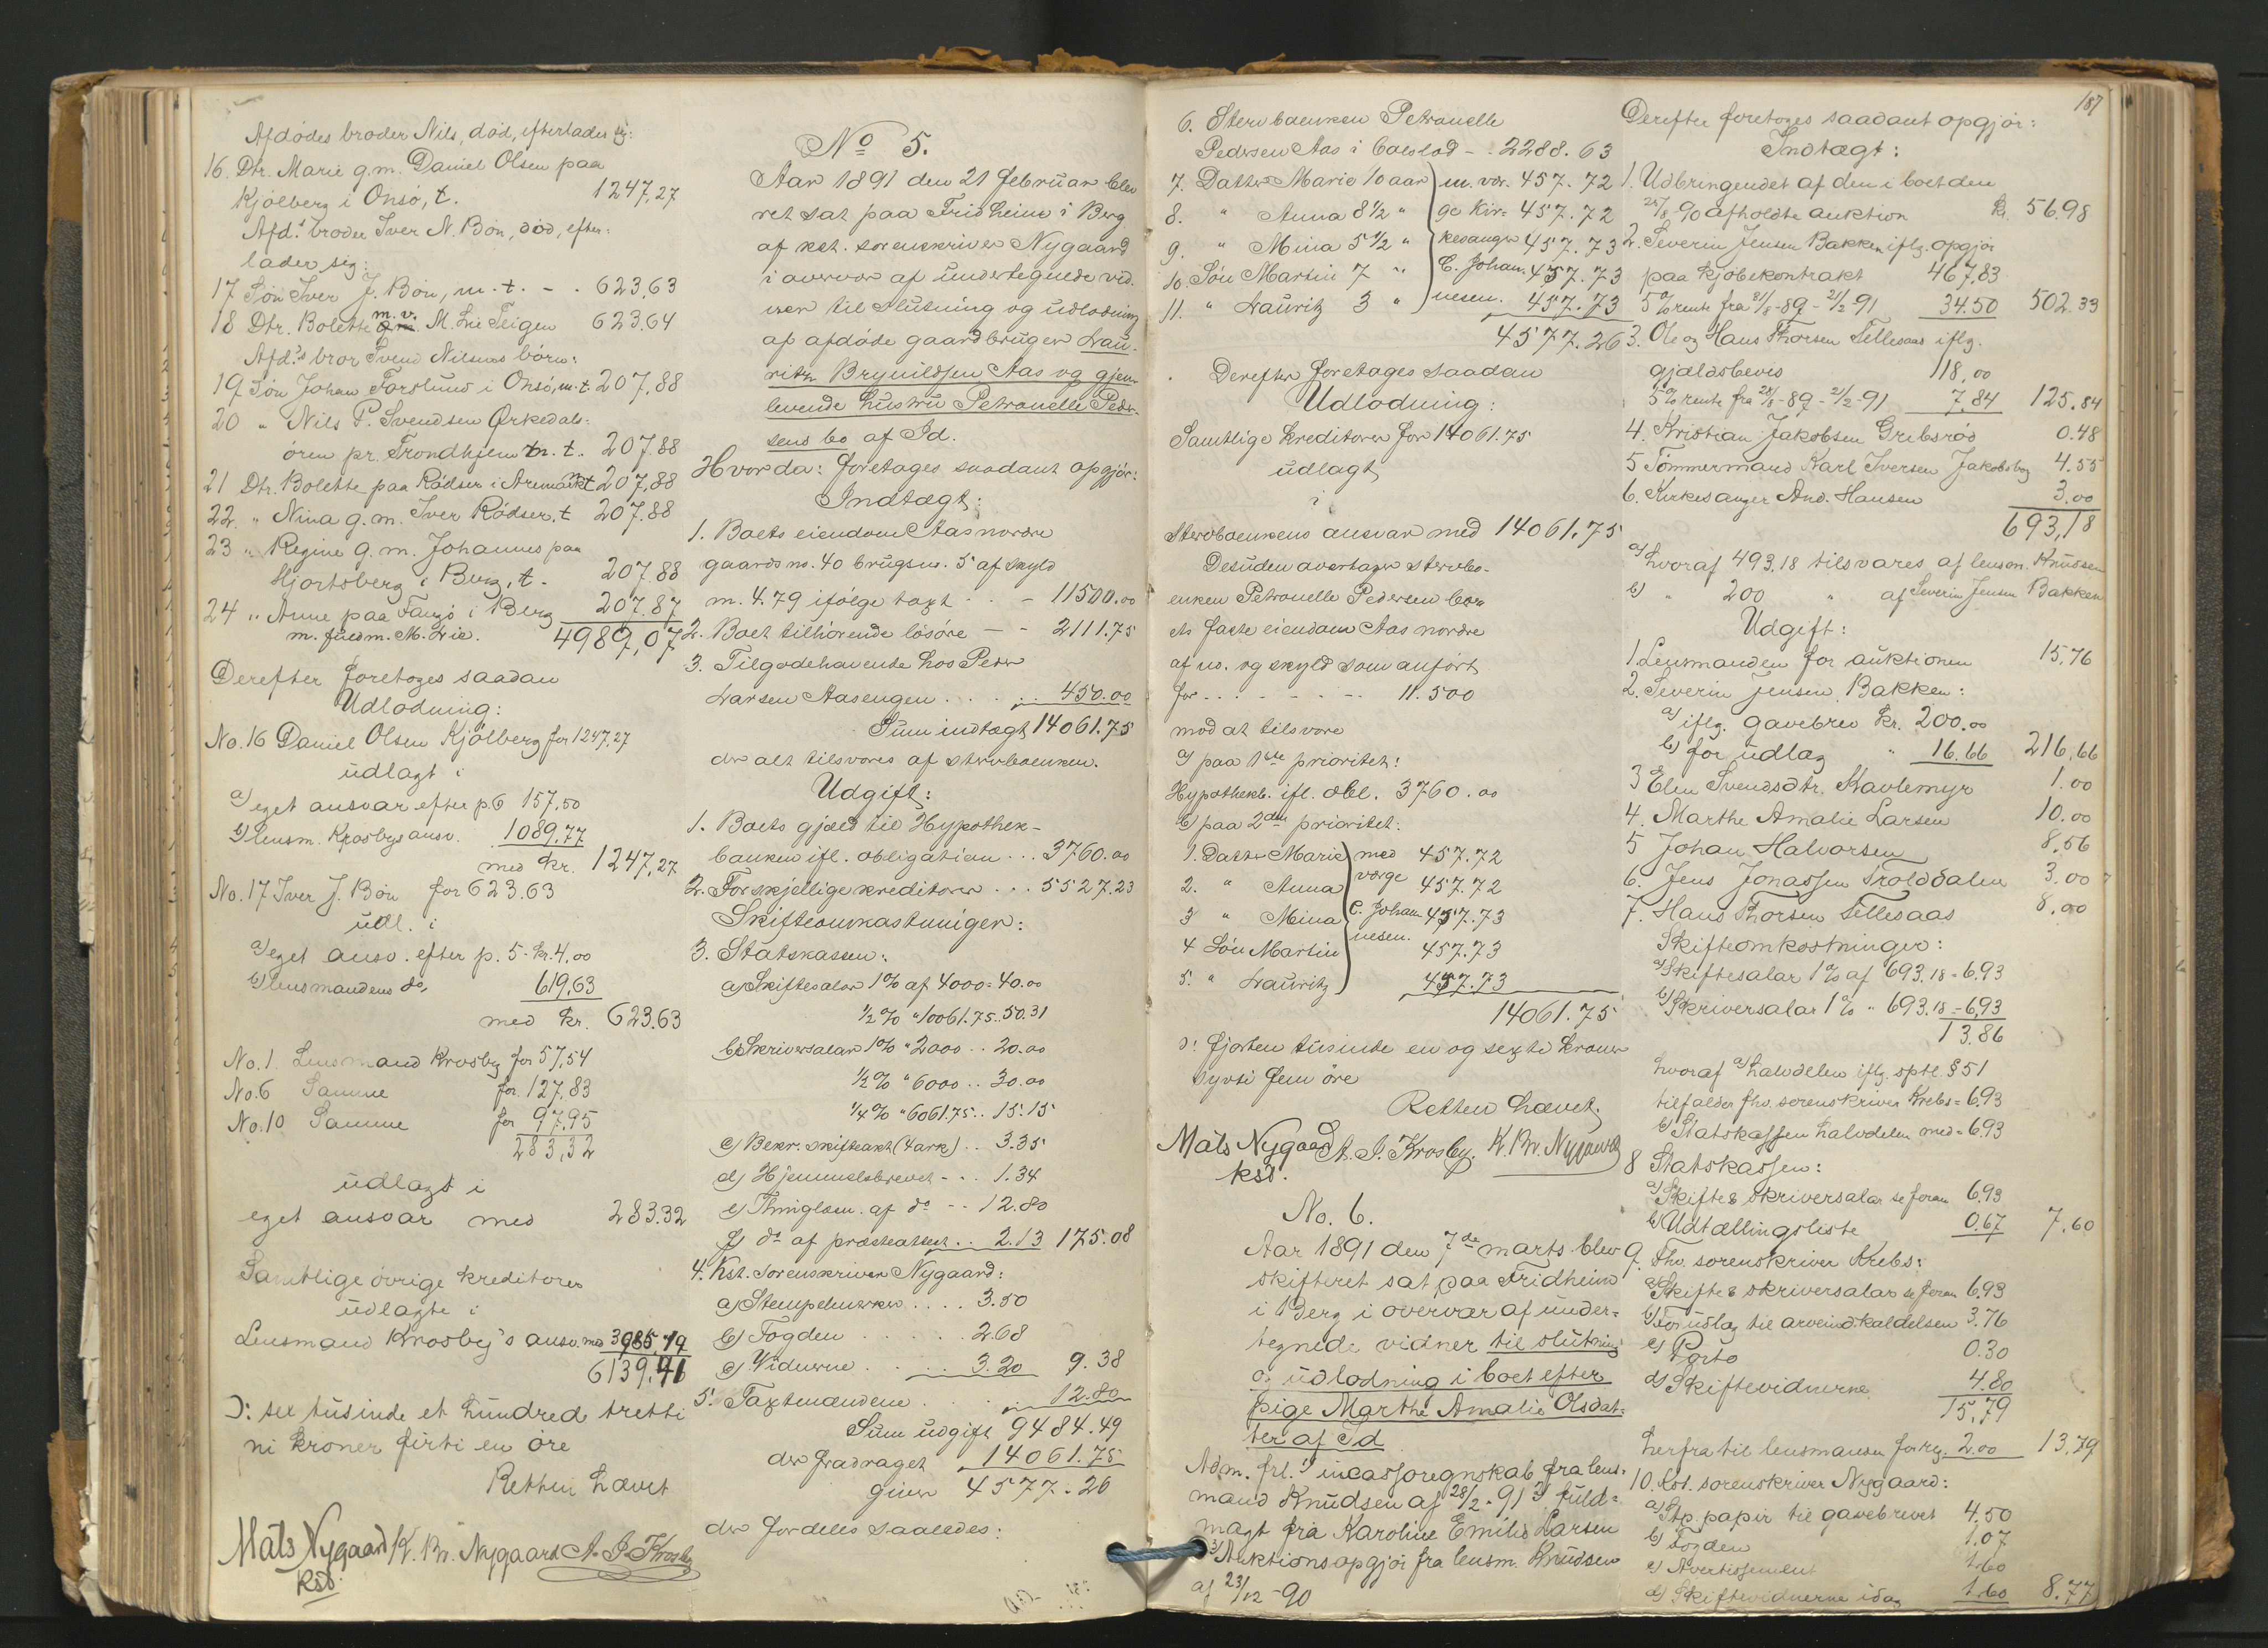 Afdødes broder Nils, død, efterlader sig:
16. Dtr. Marie g.m. Daniel Olsen paa
Kjølberg i Onsø, t. 1247,27
Afd.s broder Iver N. Bøn, død, efter-
lader sig:
17 Søn Iver J. Bøn, m.t. - . 623,63
18 Dtr. Bolette m.v. M. Lie Teigen 623,64
Afd.'s bror Svend Nilsens børn:
19 Søn Johan Forslund i Onsø, m.t 207,88
20 " Nils P. Svendsen Ørkedals-
øren pr. Trondhjem m.t. 207.88
21 Dtr. Bolette paa Rødser i Aremarkt 207,88
22. " Nina g.m. Iver Rødser, t 207.88
23 " Regine g.m. Johannes paa
Hjortsberg i Berg, t. 207.88
24 " Anne paa i Berg 207.87
m. M. Lie. 4989,07
Derefter foretoges saadan
Udlodning:
No. 16 Daniel Olsen Kjølberg for 1247.27
udlagt i
a) eget ansvar efter p 6 157,50
b) lensm. Krosbys ansv. 1089.77
med kr. 1247,27
No. 17 Iver J. Bøn for 623.63
udl. i
a) eget ansv. efter p. 5 - kr. 4,00
b) lensmandens do, 619,63
med kr. 623.63
No. 1. Lensmand Krosby for 57,54
No. 6 Samme for 127,83
No. 10 Samme for 97,95
283,32
udlagt i
eget ansvar med 283.32
Samtlige øvrige kreditorer
udlagte i
Lensmand Krosby's ansv. med 3985,19
6139,41
ɔ: sex tusinde et hundrede tretti
ni kroner firti en øre
Retten hævet
Mats Nygaard K. Br. Nygaard A. J. Krosby
kst.
No 5.
Aar 1891 den 21 februar blev
ret sat paa Fridheim i Berg
af kst. sorenskriver Nygaard
i overvær af undertegnede vid-
ner til slutning og udlodning
af afdøde gaardbruger Lau-
ritz Brynildsen Aas og gjen-
levende hustru Petronelle Peder-
sens bo af Id.
Hvorda: foretages saadant opgjør:
Indtægt:
1. Boets eiendom Aas nordre
gaards no. 40 brugsn. 5 af skyld
m. 4.79 ifølge taxt - 11500.00
2. Boet tilhørende løsøre - - 2111.75
3. Tilgodehavende hos Peder
Larsen Aasengen . . . . . 450.00
Sum indtægt 14061.75
der alt tilsvares af stervboenken.
Udgift:
1. Boets gjæld til Hypothek-
banken ifl. obligation . . . 3760.00
2. Forskjellige kreditorer . . . 5527.23
Skifteomkostninger:
3. Statskassen:
a) Skiftesalær 1% af 4000 = 40.00
½% " 10061.75.. 50.31
b) Skriversalær 1% " 2000 .. 20.00
½% " 6000 .. 30.00
¼% " 6061.75.. 15.15
c) Bekr. skifteakt (4 ark) .. 3.35
d) Hjemmelsbrevet - . . 1.34
e) Thinglæsn. af do - . . 12.80
f) do af præsteattest . . 2.13 175.08
4. Kst. sorenskriver Nygaard:
a) Stempelmerker . . . . 3.50
b) Fogden . . . . . 2.68
c) Vidnerne . . . . . 3.20 9.38
5. Taxtmændene . . . . . 12.80
Sum udgift 9484.49
der fradraget 14061.75
giver 4577.26
der fordeles saaledes:
6. Stervboenken Petronelle
Pedersen Aas i boeslod - . 2288.63
7. Datter Marie 10 aar m. vær- 457.72
8. " Anna 8½ " ge Kir- 457.72
9. " Mina 5½ " kesanger 457.73
10 Søn Martin 7 " C. Johan- 457.73
11. " Lauritz 3 " nesen. 457.73
4577.26
Derefter foretages saadan
Udlodning:
Samtlige kreditorer for 14061.75
udlagt
i
Stervboenkens ansvar med 14061.75
Desuden overtager stervbo-
enken Petronelle Pedersen bo-
ets faste eiendom Aas nordre
af no. og skyld som anført
for . . . . - . - . 11.500
mod at tilsvare
a) paa 1ste prioritet:
Hypothekb. ifl. obl. 3760.00
b) paa 2den prioritet:
1. Datter Marie med 457.72
2. " Anna værge 457.72
3 " Mina C. Johan- 457.73
4 Søn Martin nesen. 457.73
5. " Lauritz 457.73
14061.75
ɔ: fjorten tusinde en og sexti kroner
sytti fem øre
Retten hævet.
Mats Nygaard A. J. Krosby. K. Br. Nygaard
kst.
No. 6.
Aar 1891 den 7de marts blev
skifteret sat paa Fridheim
i Berg i overvær af under-
tegnede vidner til slutning
o. udlodning i boet efter
pige Marthe Amalie Olsdat-
ter af Id.
Adm. frl. 1) incassoregnskab fra lens-
mand Knudsen af 28/2-91 2) fuld-
magt fra Karoline Emilie Larsen
3) Auktionsopgjør fra lensm. Knudsen
af 23/12-90
187
Derefter foretoges saadant opgjør:
Indtægt:
1. Udbringendet af den i boet den
28/8-90 afholdte auktion kr. 56,98
2. Severin Jensen Bakken iflg. opgjør
paa kjøbekontrakt 467,83
5% rente fra 21/8-89 - 21/2-91 34.50 502.33
3. Ole og Hans Thorsen Tellesaas iflg.
gjældsbevis 118,00
5% rente fra 28/8-89 - 21/2-91 7.84 125.84
4. Kristian Jakobsen Gribsrød 0.48
5 Tømmermand Karl Iversen Jakobsbog 4.55
6. Kirkesanger And. Hansen 3.00
693,18
a) hvoraf 493.18 tilsvares af lensm. Knudsen
b) " 200 " af Severin Jensen Bakken
Udgift:
1. Lensmanden for auktionen 15,76
2. Severin Jensen Bakken:
a) iflg. gavebrev kr. 200.00
b) for udlæg " 16.66 216,66
3 Elen Svendsdtr. Kavlemyr 1.00
4. Marthe Amalie Larsen 10.00
5 Johan Halvorsen 8,56
6. Jens Jonassen Trolddalen 3.00
7. Hans Thorsen Tellesaas 8.00
Skifteomkostninger:
a) Skiftesalær 1% af 693.18 = 6.93
b) Skriversalær 1% " 693.18 = 6,93
13.86
hvoraf a) halvdelen iflg. sptl. § 51
tilfalder fhv. sorenskriver Krebs = 6.93
b) Statskassen halvdelen med = 6.93
8 Statskassen:
a) Skifte & skriversalær se foran 6.93
b) Udtællingsliste 0.67 7.60
9. Fhv. sorenskriver Krebs:
a) Skifte & skriversalær se foran 6.93
b) Forudlæg til arveindkaldelsen 3.76
c) Porto 0.30
d) Skiftevidnerne 4.80
15,79
herfra til lensmanden for reg. 2.00 13.79
10. Kst. sorenskriver Nygaard:
a) Stp. papir til gavebrevet 4.50
b) Fogden 1.07
c) Avertissement 1.60
d) Skiftevidnerne idag 1.60 8.77